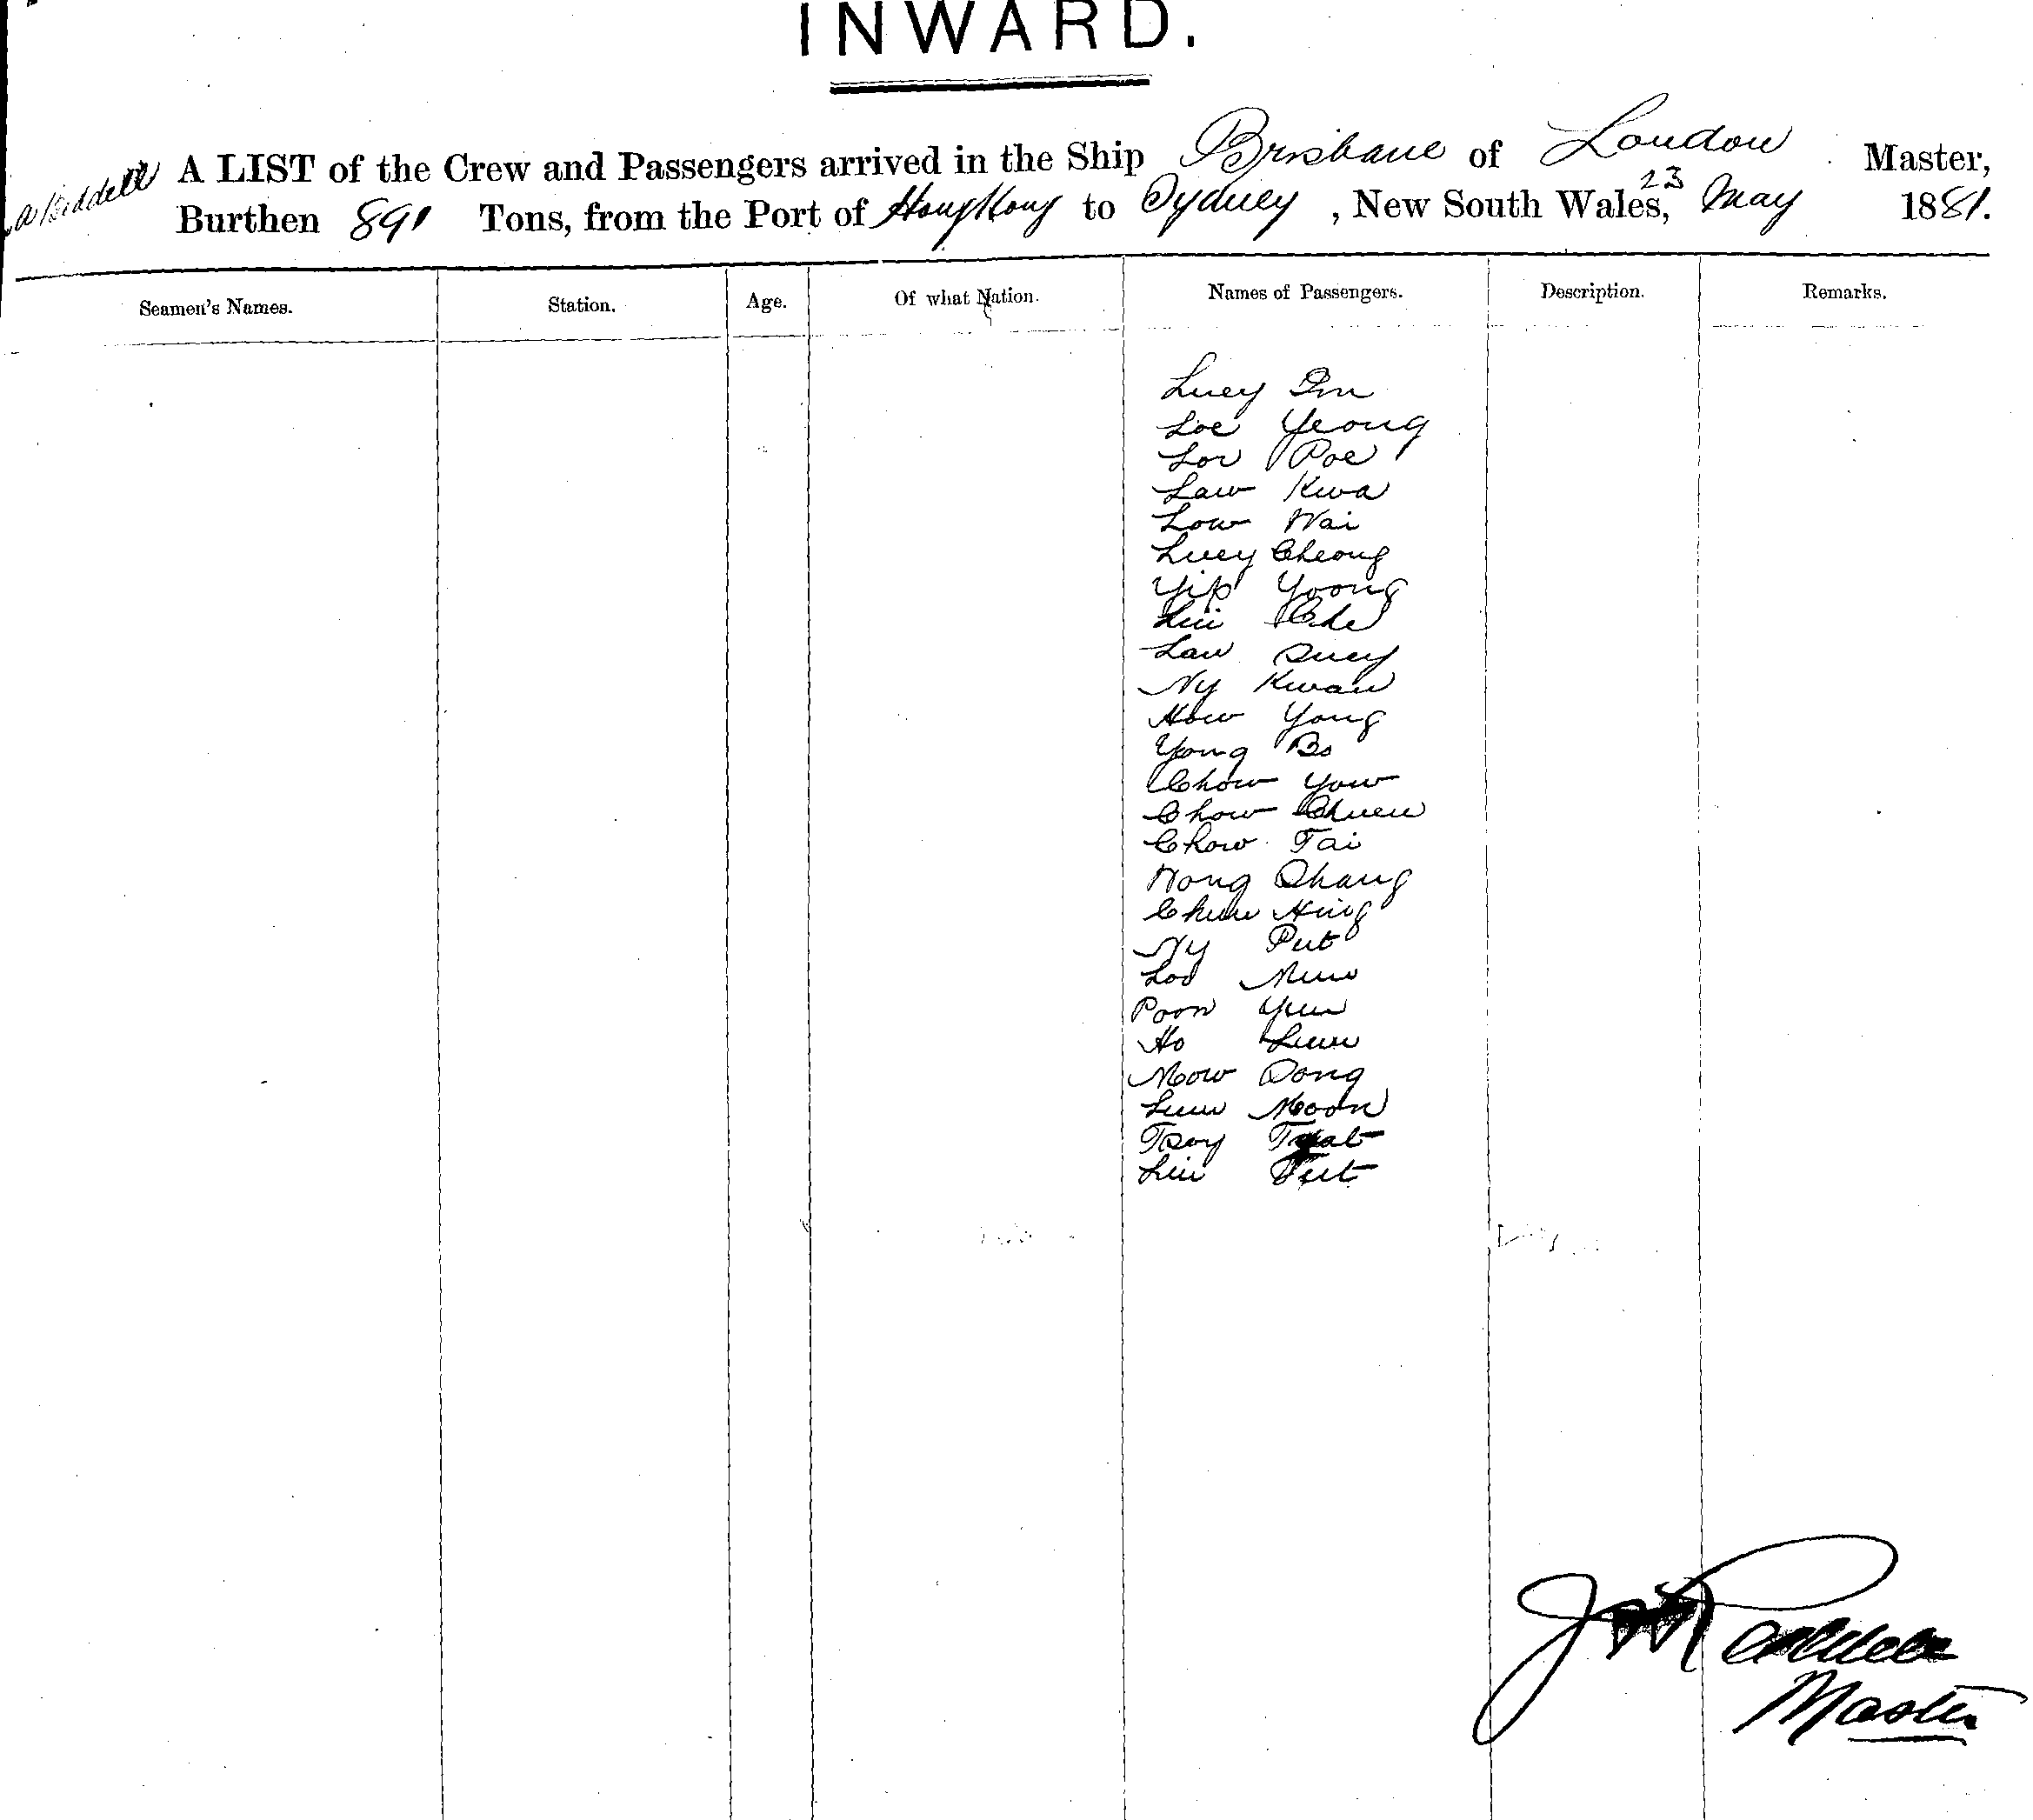 INWARD.
A LIST of the Crew and Passengers arrived in the Ship Brisbane of London Master,
Burthen 891 Tons, from the Port of Hong Kong to Sydney, New South Wales, 23 May 1881.
Seamen's Names. Station. Age. Of what Nation. Names of Passengers. Description. Remarks.
Luey
Loe Yeong
Poe
Law Kwa
Low Wai
Luey Cheong
Yip Yoong
Che
Law Suey
Ny Kwan
How Yong
Yong Bo
Chow Yow
Chow Chuen
Chow Tai
Wong Shang
Hing
Ny Put
Loo
Poon Yun
Ho Lum
Mow Song
Lum Moon
Tsoy
Tut
Master